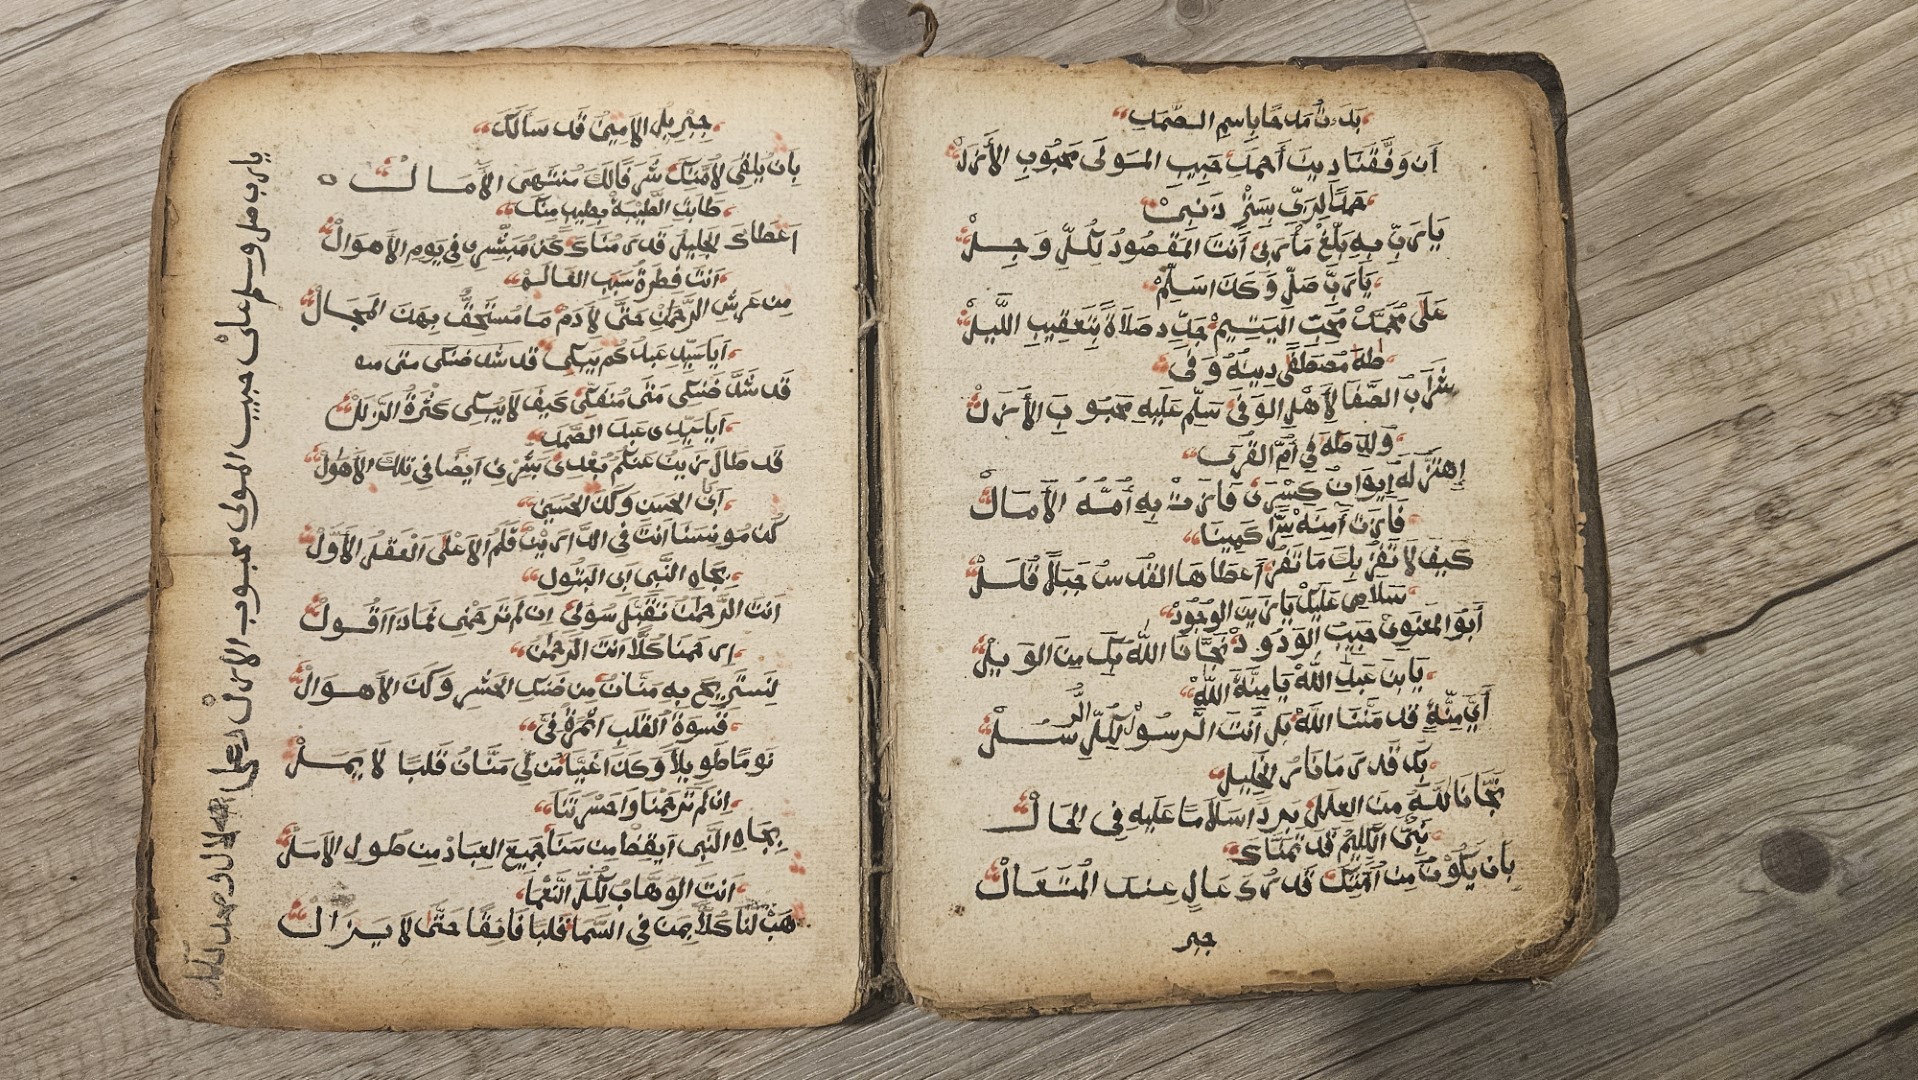 بَدَتْ مَدحًا بِاسمِ الصَّمَد
أَن وَفَّقَنَا دِينَ أَحمَد حَبِيبِ المَولَى مَحبُوبِ الأَزَل
حَمدًا لِرَبِّي بِسَترِ ذَنبِي
يَا رَبِّ بِهِ بَلِّغْ مَأرَبِى أَنتَ المَقصُودُ لِكُلِّ وَجِل
يَا رَبِّ صَلِّ وَكَذَا سَلِّم
عَلَى مُحِبِّ اليَتِيم صَلَاةً بِتَعقِيبِ اللَّيل
طٰهَ مُصطَفَى دِينُهُ وَفَى
شَرَابُ الصَّفَا لِأَهلِ الوَفَى سَلِّم عَلَيهِ مَحبُوبَ الأَزَل
وُلِد طٰهَ فِي أُمِّ القُرَى
إِهتَزَّ لَهُ إِيوَانُ كِسرَى فَازَتْ بِهِ أُمُّهُ الأَمَال
فَازَت آمِنَه سِرًّا كَمِينَا
كَيفَ لَا تَفُز بِكَ مَا تَفُز أَعطَاهَا القُدس جَبَلًا قُلَل
سَلَامِي عَلَيك يَا زَينَ الوُجُود
أَبُو المَعنَوِي حَبِيبُ الوَدُود نَجَّانَا اللهُ بِكَ مِنَ الوَيل
يَا بنَ عَبدِ اللهِ يَا مِنَّةَ اللهِ
أَيُّ مِنَّةٍ قَد مَنَّنَا اللهُ بَل أَنتَ الرَسُول لِكُلِّ الرُّسُل
بِكَ قَدرِي مَا فَازَ الخَلِيل
نَجَّانَا اللهُ مِنَ العِلَل بَردًا سَلَامًا عَلَيهِ فِى الحَال
نَبِىُّ الكَلِيمُ قَد تَمَنَّاكَ
بِأَن يَكُونَ مِن أُمَّتِكَ قَدرُكَ عَالٍ عِندَ المُتَعَال
جبر
جِبرِيلِ الامِينُ قَد سَالَكَ
بِان يُلقِى لِاُمَّتِكَ سُرَّ فَالَكَ مُنتَهَى الأَمَال
طَابَتِ الطَّيبَةُ بِطِيبٍ مِنكَ
اَعطَاكَ الجَلِيل قَدرَ مُنَاكَ كُن مُبَشِّرِى فِى يَومِ الاَهوَال
اَنتَ فِطرَةُ سَبَبِ العَالَم
مِن عَرشِ الرَّحمٰن حَتَّى لِادَم مَا مُستَحِقٌّ بِهٰذَ المَجَال
اَيَا سَيِّدِ عَبدُكُم يَبكِى قَد شَدَّ ضَنكِى مَتى
قَد شَدَّ ضَنكِى مَتَى مُنفَكِّى كَيفَ لَا يُبكِى كَثرَةُ الزَلَل
اَيَا سَيِّدِى عَبدَ الصَّمَد
قَد طَالَ زَينُ عَنكُم بُعدِى بَشِّرنِى اَيضًا فِى تِلكَ الاَهوَل
اَبَا الحَسَن وَكَذَ الحُسَين
كُن مُونِسَنَا اَنتَ فِى الدَّارَين قَلَمُ الاَعلَى العَقلُ الأَوَّل
بِجَاهِ النَّبِى اَبِى البَتُول
اَنتَ الرَّحمٰنُ تَقَبَّل سُولِى اِن لَم تَرحَمنِى فَمَاذَا اَقُول
اِرحَمنَا كُلًّا اَنتَ الرَحمٰن
لِنَستَرِيحَ بِهِ مَنَّانُ مِن ضَنكِ الحَشرِ وَكَذَ الاَهوَال
قَسوَةُ القَلبِ اَثَّرَةٌ فِىَّ
نَومًا طَوِيلًا وَكَذَ اَغيًا مُن لِى مَنَّانُ قَلبًا لَا يَمَل
اِن لَم تَرحَمنَا وَاحَسرَتَنَا
بِجَاهِ النَّبِى اَيقِظ مِن سَنَا جَمِيعَ العِبَاد مِن طُولِ الاَمَل
اَنتَ الوَهَّابُ لِكُلِّ النَّعمَا
هَب لَنَا كُلًّا مِمَن فِى السَّمَا قَلبًا فَائِقًا حَتَّى لَا يَزَال
يارب صل وسلم على حبيب المولى محبوب الازل وعلى الال وصحب